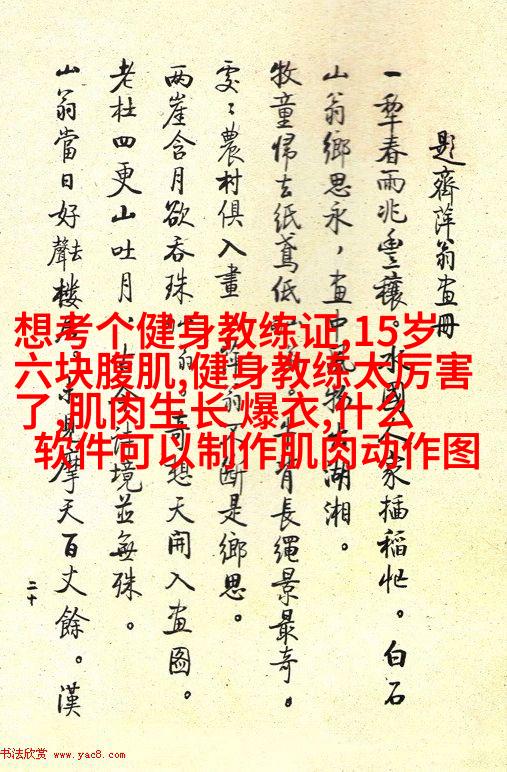 題齊萍翁畫冊
一犂春雨兆豐穰。水國人家插稻忙。白石
山翁鄉思永,畫中 湖湘。
牧童歸去紙鳶低 牛背長繩景最奇。
處々農村俱入畫 萍翁不斷是鄉思。
兩崖含月欲吞珠 奇想天開入畫圖。
老杜四更山吐月 詩境並無殊。
山翁當日好聲去樓 示現摩天百丈餘。漢
二十
想考个健身教练证,15岁
六块腹肌,健身教练太厉害
了 肌肉生长 爆衣,什么
软件可以制作肌肉动作图
书法欣赏 www.yac8.com